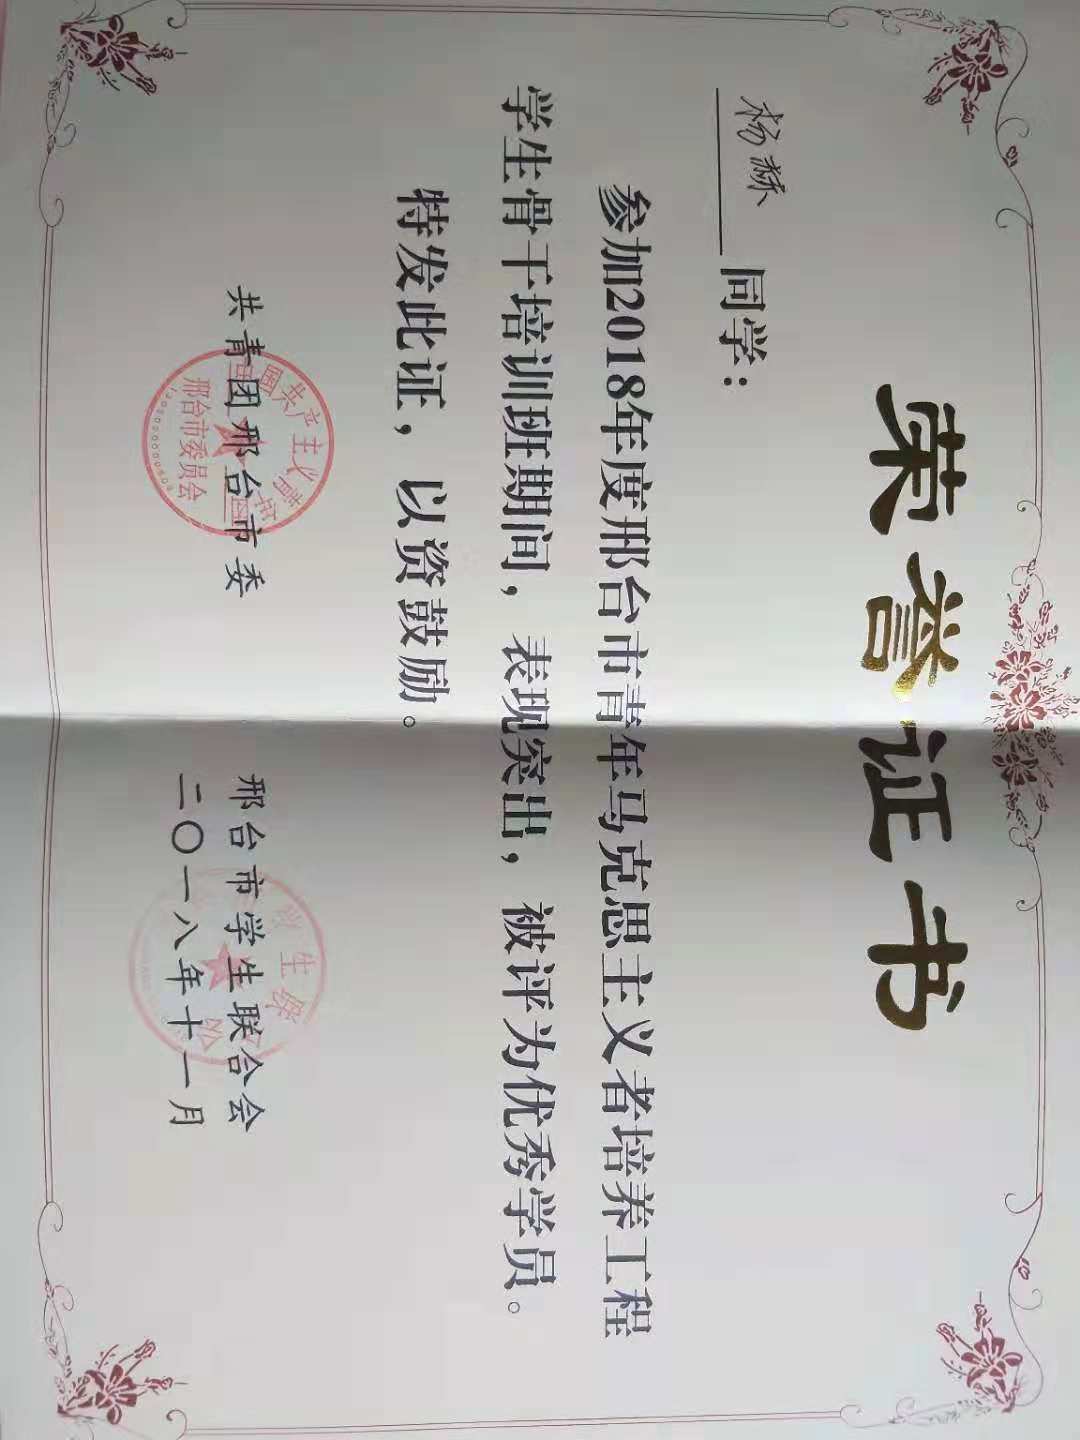 荣誉证书
杨赫同学：
参加2018年度邢台市青年马克思主义者培养工程
学生骨干培训班期间，表现突出，被评为优秀学员。
特发此证，以资鼓励。
共青团邢台市委
邢台市学生联合会
二〇一八年十一月
中国共产主义青年团
邢台市委员会